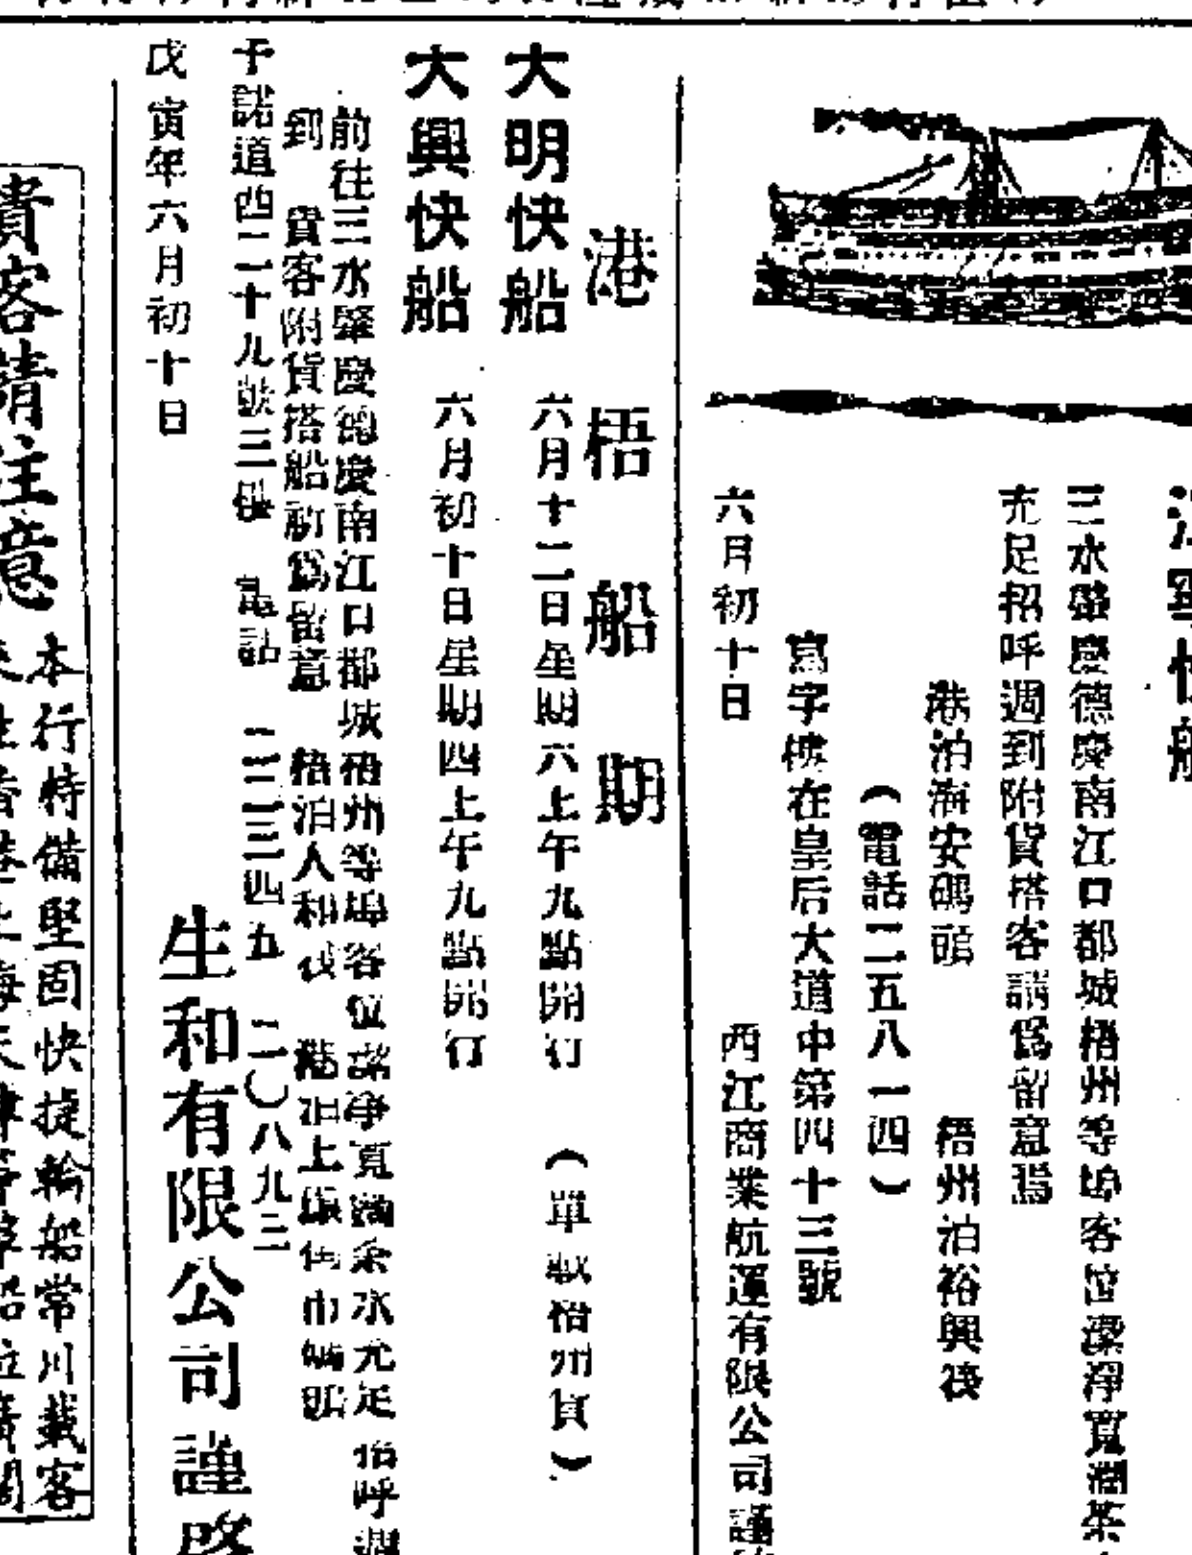 三水肇慶德慶南江口都城梧州等埠客位潔淨寬濶茶
充足招呼週到附貨搭客請爲留意焉
港泊海安碼頭 梧州泊裕興筏
(電話二五八一四)
寫字樓在皇后大道中第四十三號
六月初十日 西江商業航運有限公司謹
港梧船期
大明快船 六月十二日星期六上午九點開行 (單收梧州貨)
大興快船 六月初十日星期四上午九點開行
前往三水肇慶德慶南江口都城梧州等埠客位潔淨寬濶茶水充足招呼週
到 貴客附貨搭船祈爲留意 梧泊人和伐 港泊上環街市碼頭
干諾道四二十九號三樓 電話 二二三四五 二〇八九二
生和有限公司謹啓
戊寅年六月初十日
貴客請注意
本行特備堅固快捷輪船常川載客